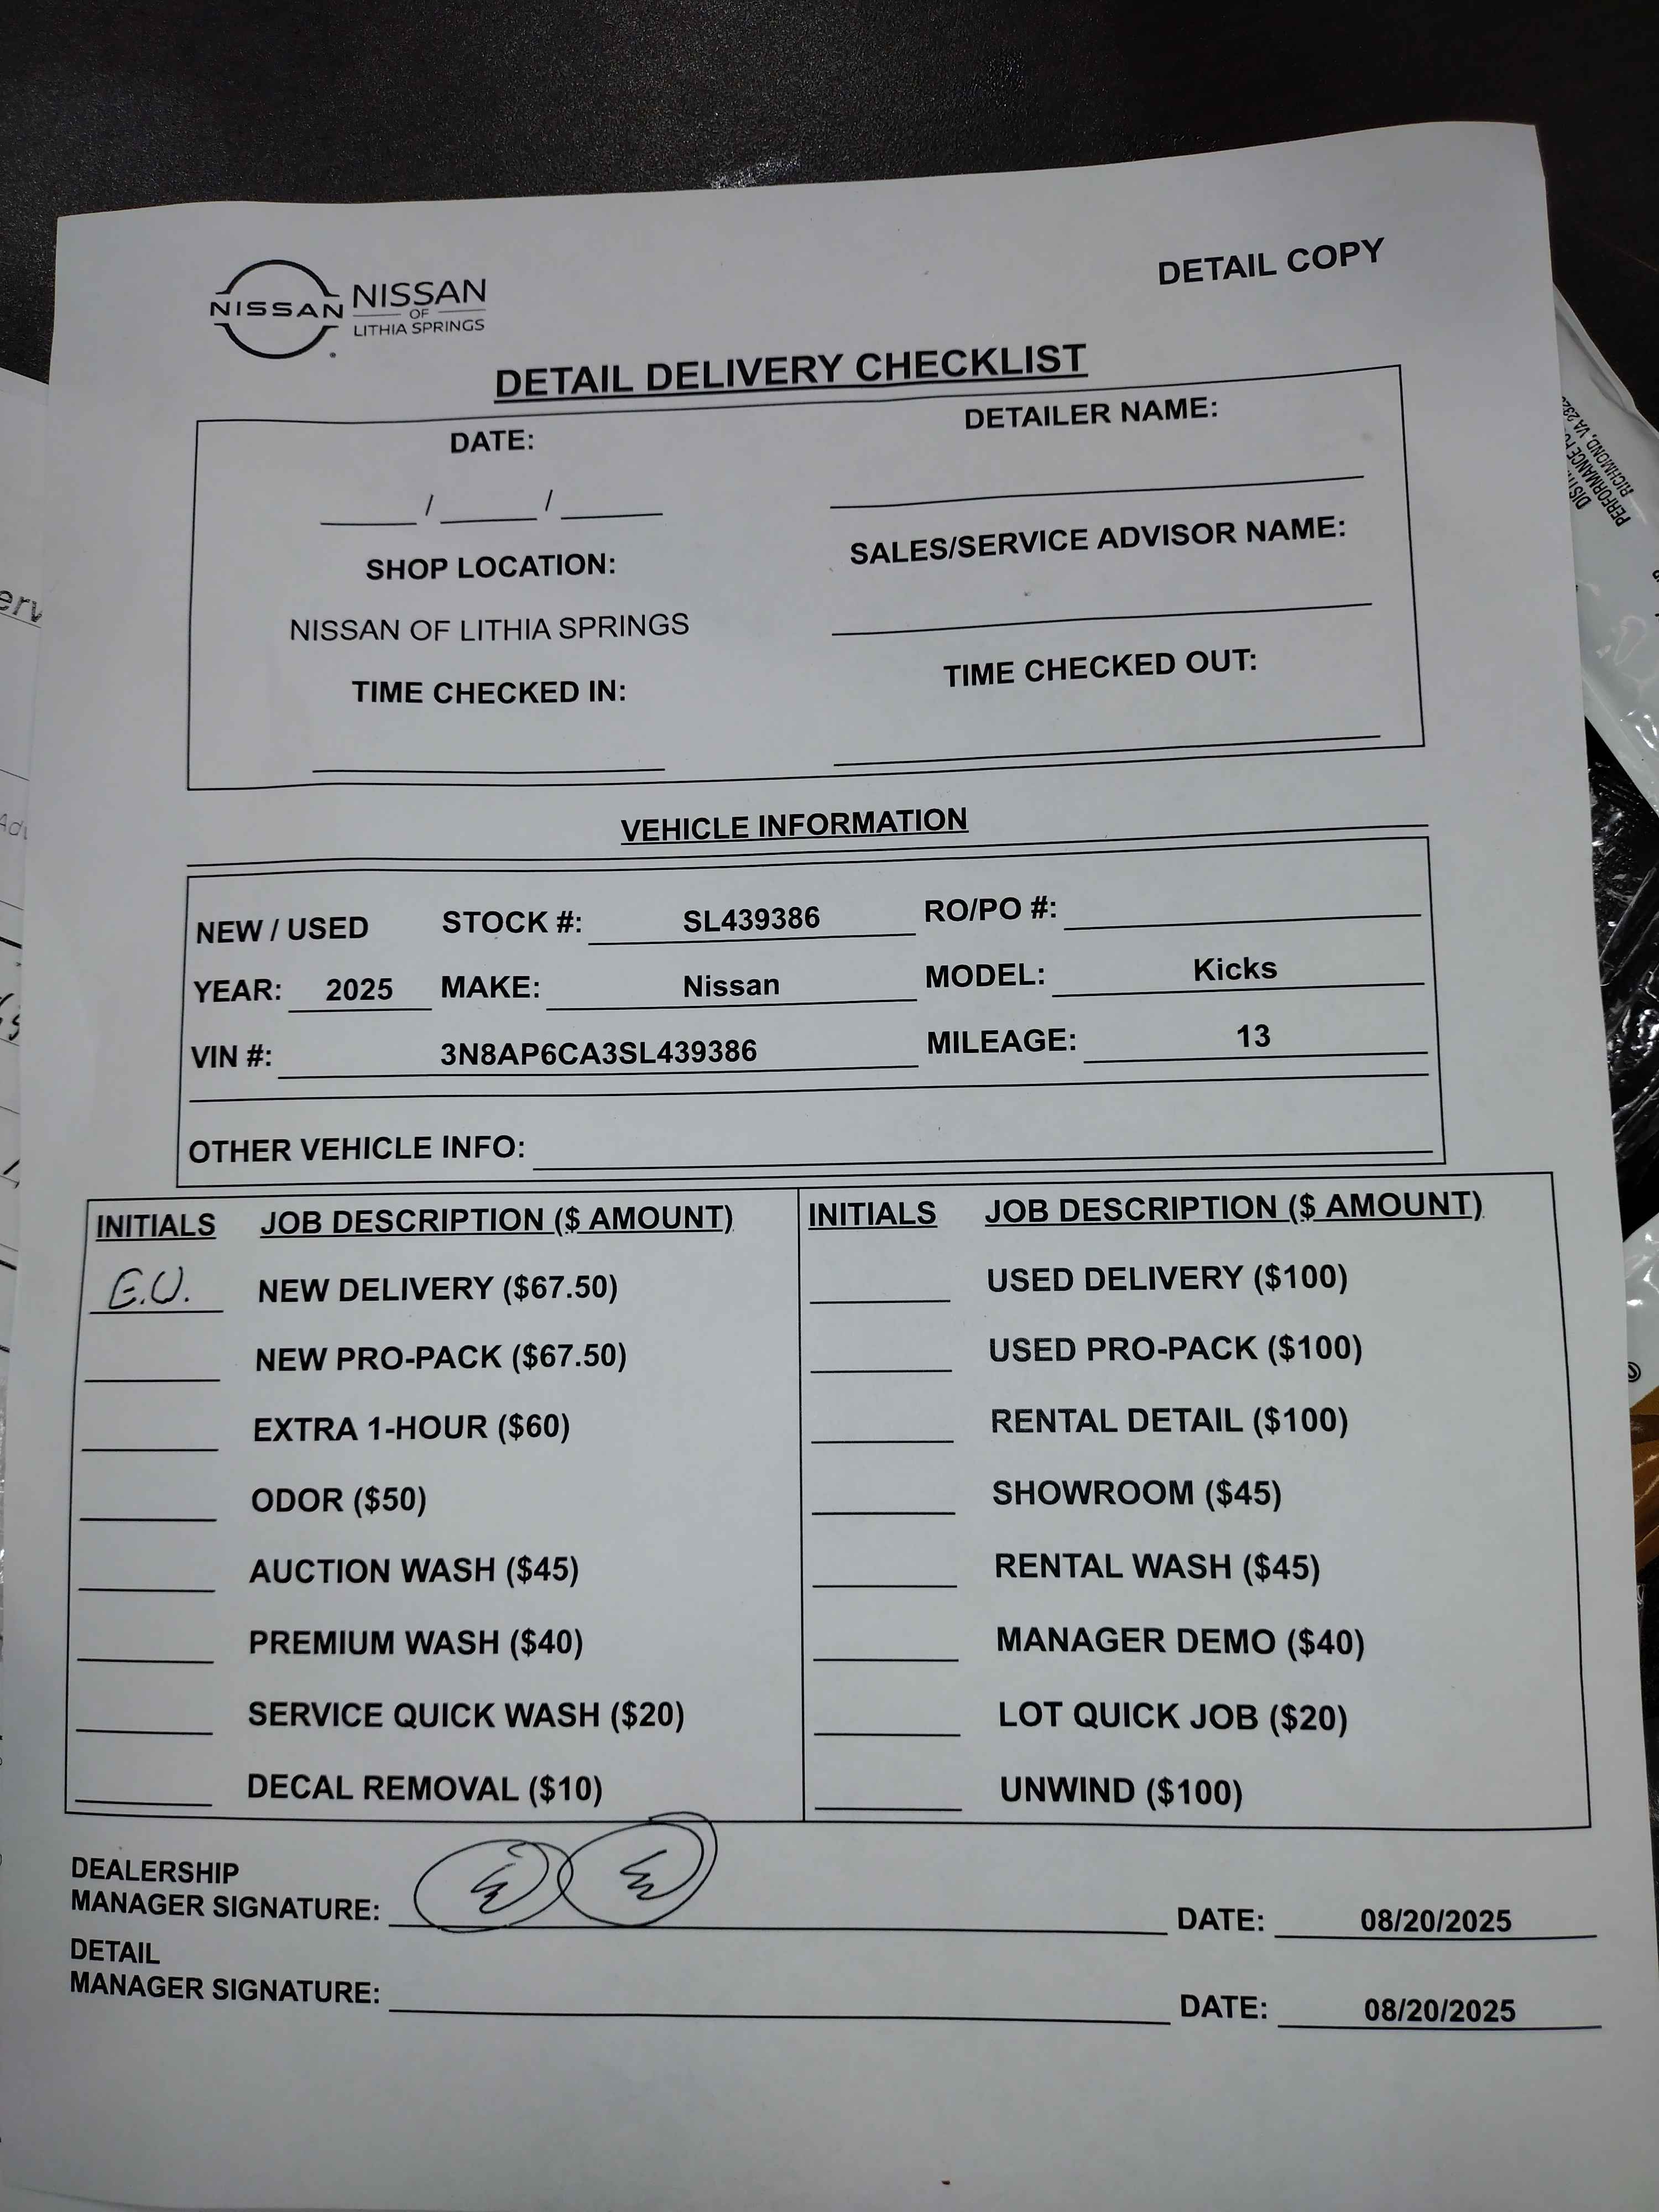 DETAIL COPY
NISSAN NISSAN
OF
LITHIA SPRINGS
DETAIL DELIVERY CHECKLIST
DATE: DETAILER NAME:
____ / ____ / ____
SHOP LOCATION: SALES/SERVICE ADVISOR NAME:
NISSAN OF LITHIA SPRINGS
TIME CHECKED IN: TIME CHECKED OUT:
VEHICLE INFORMATION
NEW / USED STOCK #: SL439386 RO/PO #:
YEAR: 2025 MAKE: Nissan MODEL: Kicks
VIN #: 3N8AP6CA3SL439386 MILEAGE: 13
OTHER VEHICLE INFO:
INITIALS JOB DESCRIPTION ($ AMOUNT) INITIALS JOB DESCRIPTION ($ AMOUNT)
NEW DELIVERY ($67.50) USED DELIVERY ($100)
NEW PRO-PACK ($67.50) USED PRO-PACK ($100)
EXTRA 1-HOUR ($60) RENTAL DETAIL ($100)
ODOR ($50) SHOWROOM ($45)
AUCTION WASH ($45) RENTAL WASH ($45)
PREMIUM WASH ($40) MANAGER DEMO ($40)
SERVICE QUICK WASH ($20) LOT QUICK JOB ($20)
DECAL REMOVAL ($10) UNWIND ($100)
DEALERSHIP
MANAGER SIGNATURE: DATE: 08/20/2025
DETAIL
MANAGER SIGNATURE: DATE: 08/20/2025
RICHMOND, VA